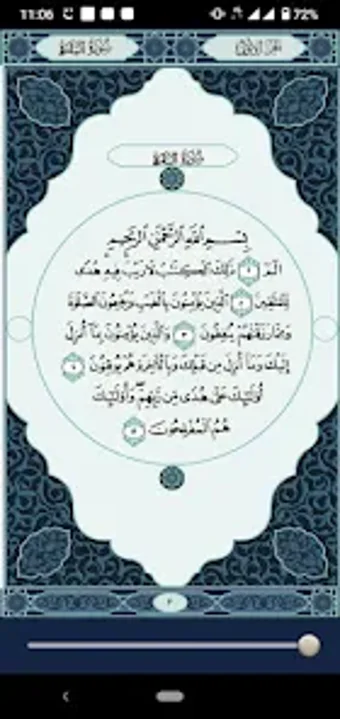 11:06 72%
سُورَةُ البَقَرَةِ الجزء الأول
سُورَةُ البَقَرَةِ
بِسْمِ اللَّهِ الرَّحْمَٰنِ الرَّحِيمِ
الٓمٓ ١ ذَٰلِكَ الْكِتَٰبُ لَا رَيْبَ فِيهِ هُدًى
لِّلْمُتَّقِينَ ٢ الَّذِينَ يُؤْمِنُونَ بِالْغَيْبِ وَيُقِيمُونَ الصَّلَوٰةَ
وَمِمَّا رَزَقْنَٰهُمْ يُنفِقُونَ ٣ وَالَّذِينَ يُؤْمِنُونَ بِمَا أُنزِلَ
إِلَيْكَ وَمَا أُنزِلَ مِن قَبْلِكَ وَبِالْآخِرَةِ هُمْ يُوقِنُونَ ٤
أُولَٰئِكَ عَلَىٰ هُدًى مِّن رَّبِّهِمْ وَأُولَٰئِكَ
هُمُ الْمُفْلِحُونَ ٥
٢